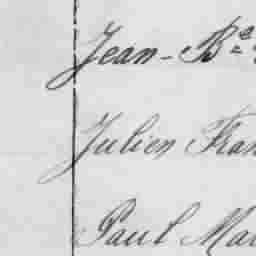 Jean-Bte
Julien Fran
Paul Ma